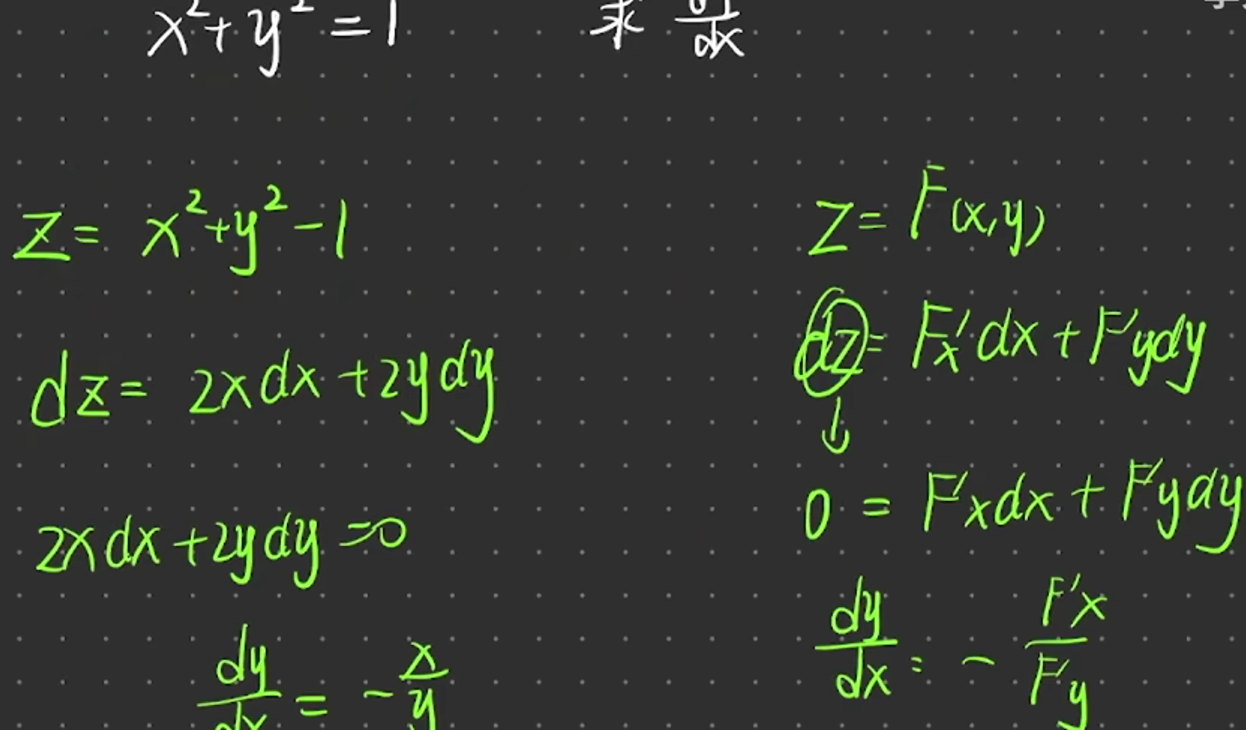 x²+y²=1 求 dy/dx
z= x²+y²-1
dz= 2xdx+2ydy
2xdx+2ydy=0
dy/dx = -x/y
z= F(x,y)
dz= F'xdx+F'ydy
↓
0 = F'xdx+F'ydy
dy/dx = - F'x/F'y